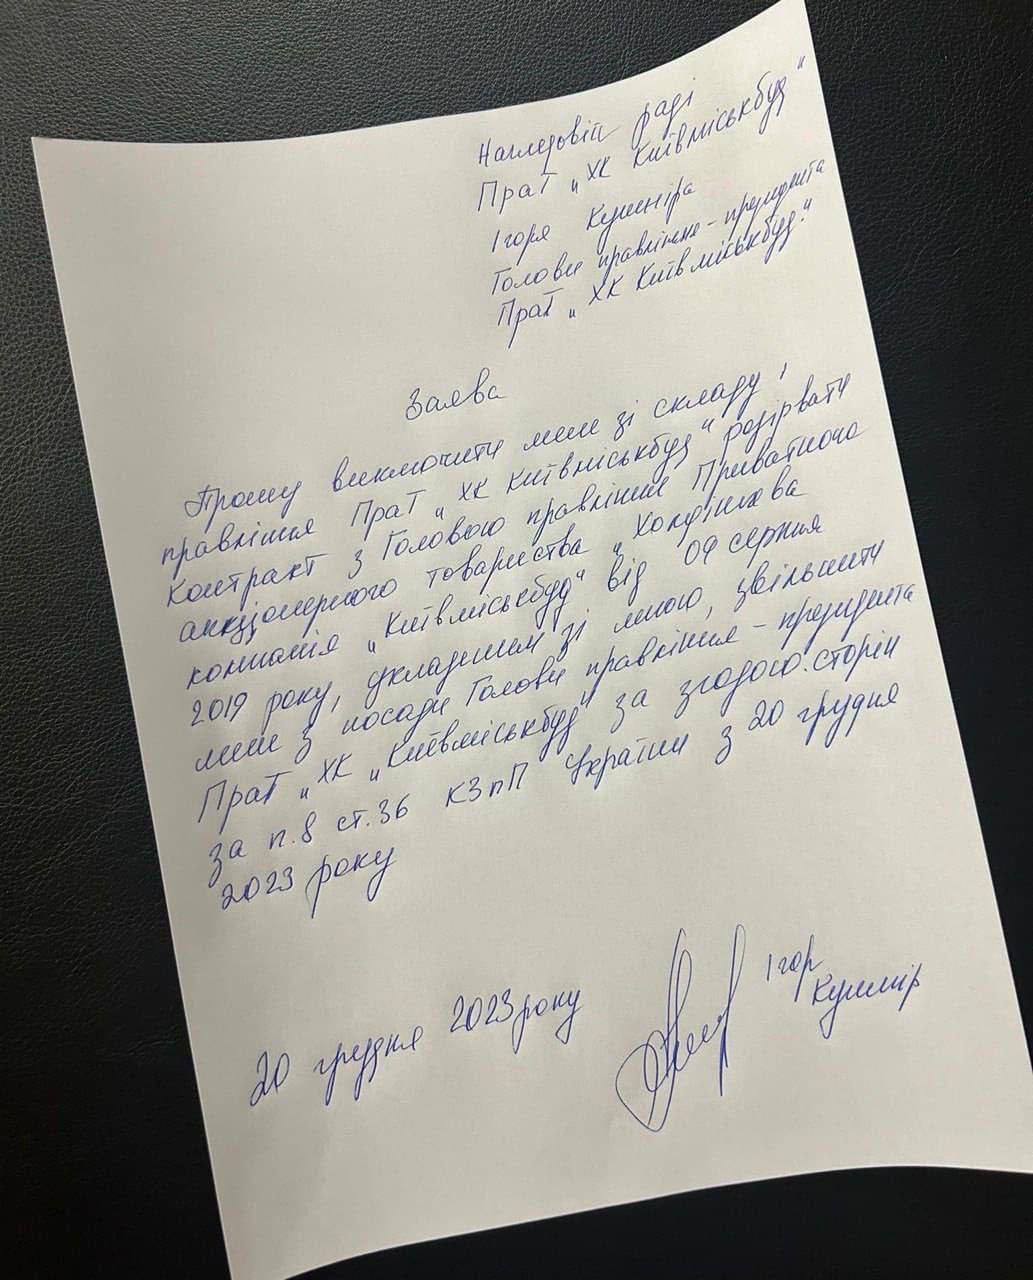 Наглядовій раді
ПраТ „ХК Київміськбуд"
Ігоря Кушніра
Голови правління - президента
ПраТ „ХК Київміськбуд."
Заява
Прошу виключити мене зі складу
правління ПраТ „ХК Київміськбуд", розірвати
Контракт з Головою правління Приватного
акціонерного товариства „Холдингова
компанія „Київміськбуд" від 09 серпня
2019 року, укладеним зі мною, звільнити
мене з посади Голови правління - президента
ПраТ „ХК „Київміськбуд" за згодою сторін
за п.8 ст.36 КЗпП України з 20 грудня
2023 року
20 грудня 2023 року
Ігор
Кушнір